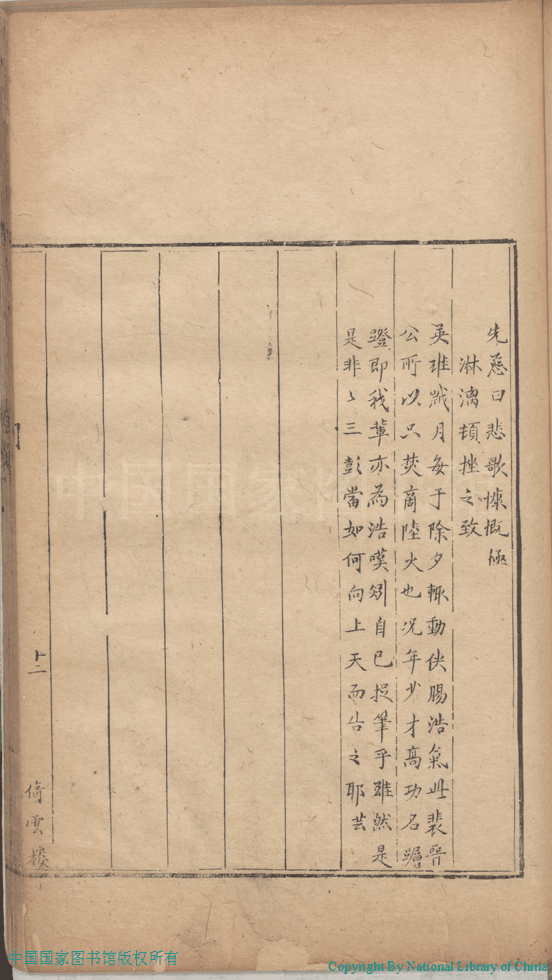 先慈曰悲歌慷慨極
淋漓頓挫之致
英雄歲月每于除夕輙動俠腸浩氣此裴晋
公所以只焚商陸火也况年少才高功名蹭
蹬即我輩亦為浩嘆矧自已捉筆乎雖然是
是非〻三彭當如何向上天而告之耶芸
十二
倚雲樓
中国国家图书馆版权所有
Copyright By National Library of China